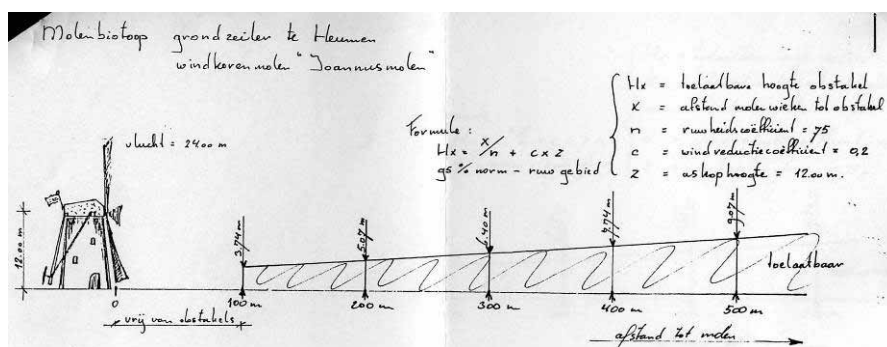 Molenbiotoop grondzeiler te Heumen
windkorenmolen "Joannusmolen"
vlucht = 2400 m
Formule :
Hx = x/n + c x z
95 % norm - ruw gebied
Hx = toelaatbare hoogte obstakel
X = afstand molenwieken tot obstakel
n = ruwheidscoëfficient = 75
c = windreductiecoëfficient = 0,2
Z = askophoogte = 12.00 m.
12.00 m
3.74 m
5.07 m
6.40 m
7.74 m
9.07 m
toelaatbaar
0
100 m
200 m
300 m
400 m
500 m
vrij van obstakels
afstand tot molen